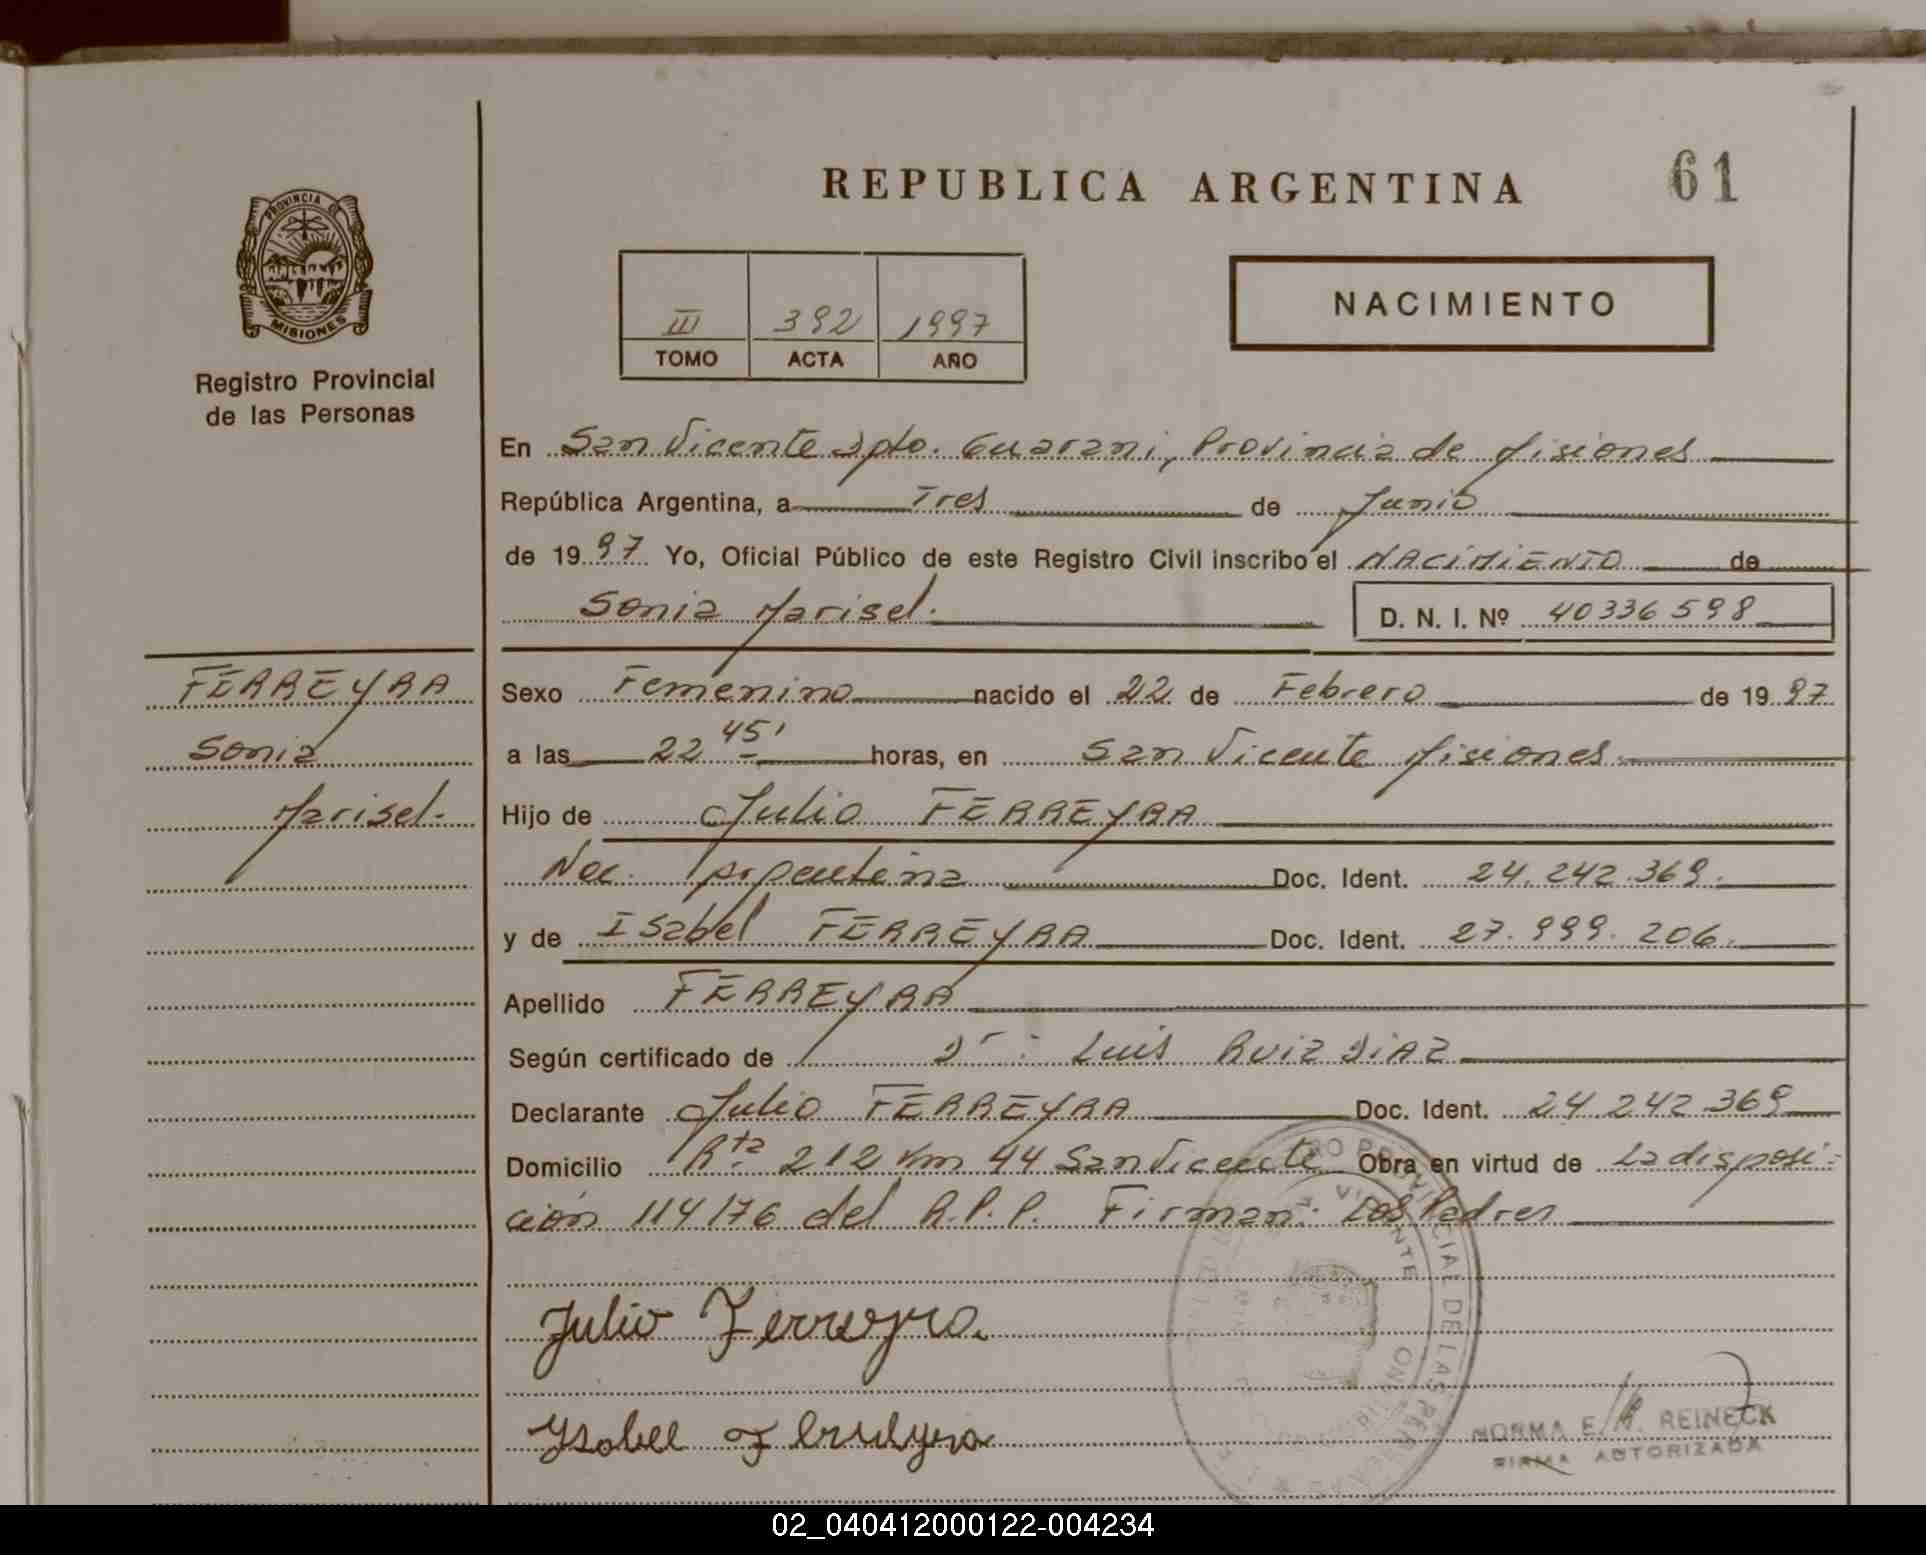 REPUBLICA ARGENTINA
61
PROVINCIA DE
MISIONES
Registro Provincial
de las Personas
III 392 1997
TOMO ACTA AÑO
NACIMIENTO
En San Vicente Dpto. Guarani, Provincia de Misiones
República Argentina, a Tres de Junio
de 1997 Yo, Oficial Público de este Registro Civil inscribo el NACIMIENTO de
Sonia Marisel.
D. N. I. Nº 40336598
FERREYRA
Sonia
Marisel.
Sexo Femenino nacido el 22 de Febrero de 1997
a las 22 45' horas, en San Vicente Misiones
Hijo de Julio FERREYRA
Nac. Argentina Doc. Ident. 24.242.369.
y de Isabel FERREYRA Doc. Ident. 27.999.206.
Apellido FERREYRA
Según certificado de Dr: Luis RUIZ DIAZ
Declarante Julio FERREYRA Doc. Ident. 24 242 369
Domicilio Rta 212 Km 44 San Vicente Obra en virtud de La disposi-
ción 114/76 del R.P.P. Firman: Los Padres
Julio Ferreyra.
Ysabel Ferreyra
NORMA E. REINECK
FIRMA AUTORIZADA
02_040412000122-004234